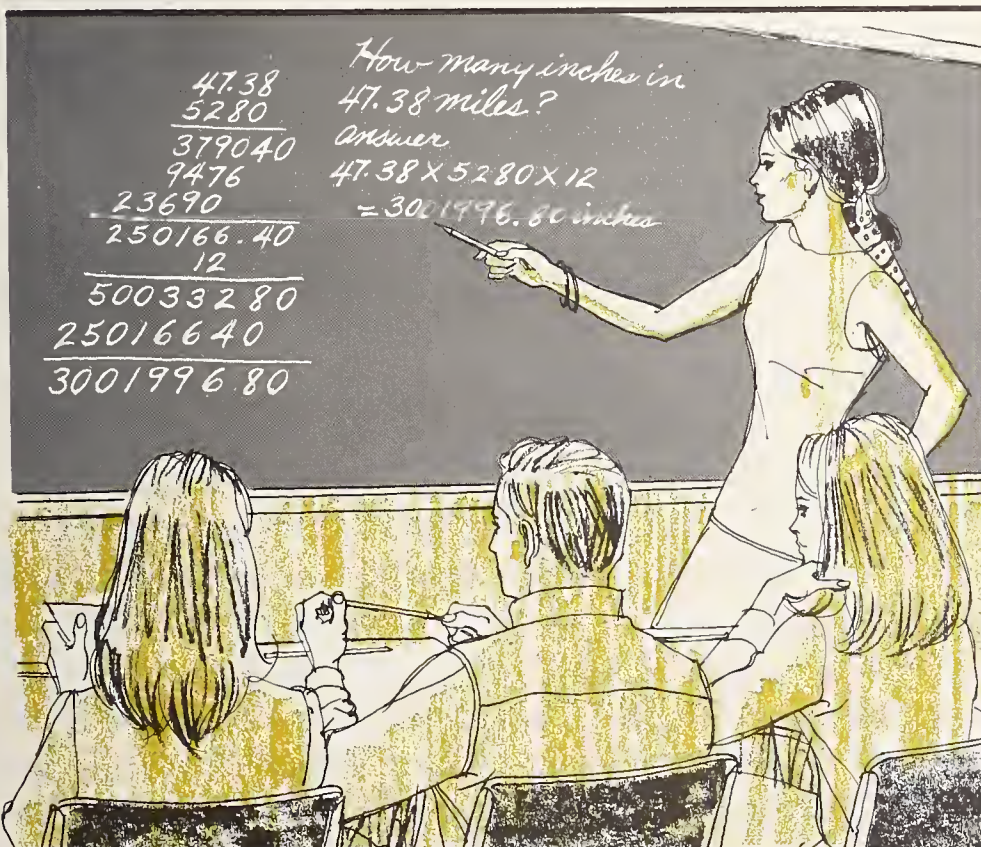 47.38
5280
379040
9476
23690
250166.40
12
50033280
25016640
3001996.80
How many inches in
47.38 miles?
answer
47.38 X 5280 X 12
= 3001996.80 inches